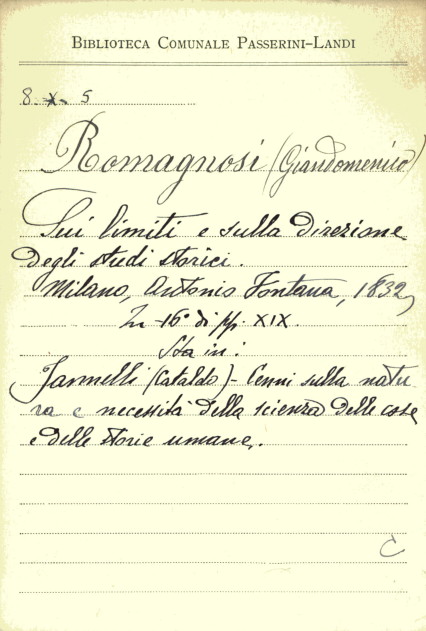 BIBLIOTECA COMUNALE PASSERINI-LANDI
8.-X-. 5
Romagnosi (Giandomenico)
Sui limiti e sulla direzione
degli studi storici.
Milano, Antonio Fontana, 1832,
In-16° di pp. XIX.
Sta in:
Jannelli (Cataldo) - Cenni sulla natu
ra e necessità della scienza delle cose
e delle storie umane.
C